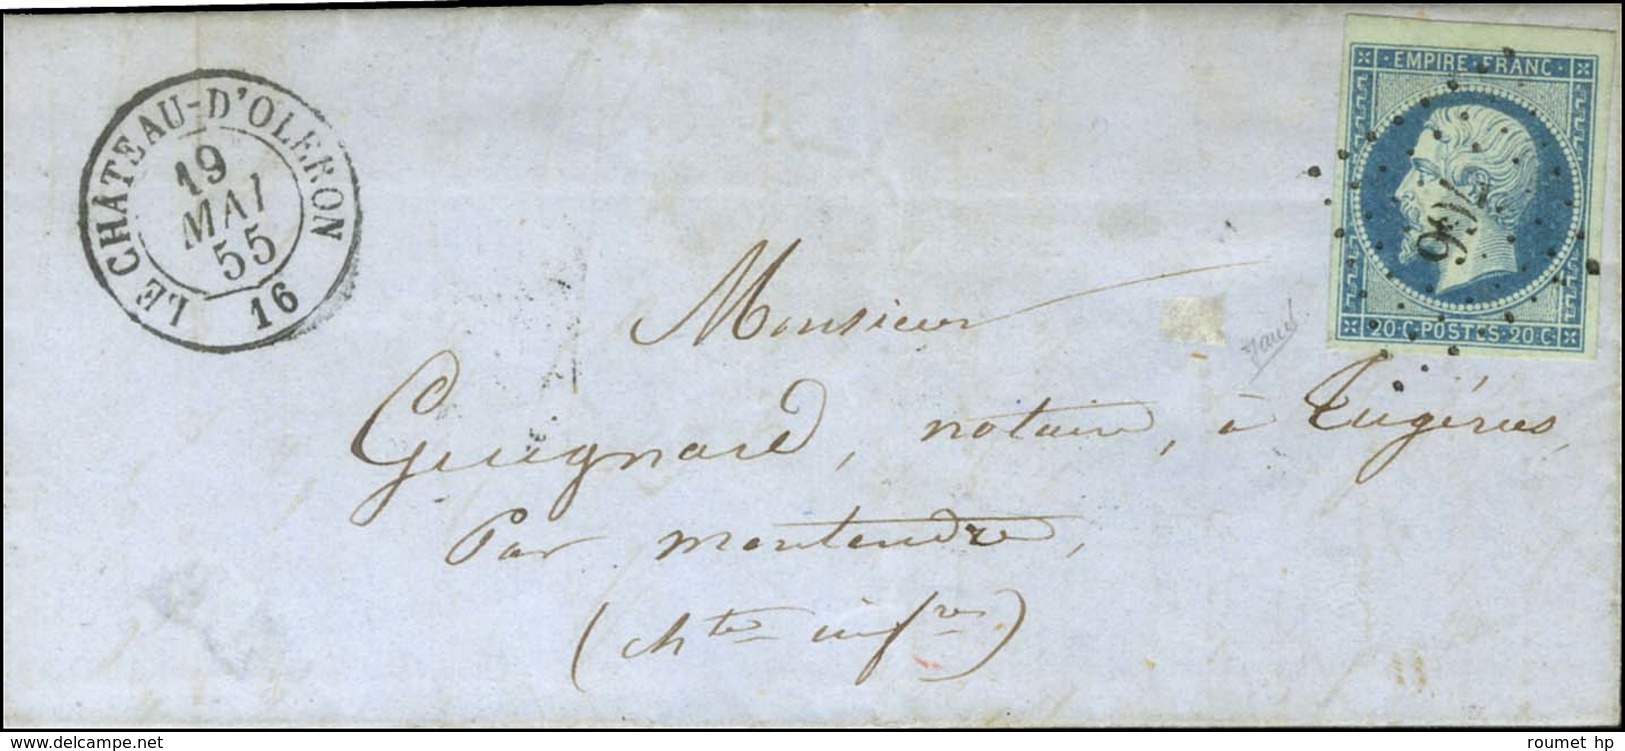 LE CHÂTEAU-D'OLERON
19
MAI
55
16
EMPIRE · FRANC ·
20 · C · POSTES · 20 · C
Monsieur
Guignard, notaire, à Tugéras,
Par montendre,
(chte infre)
delcampe.net
roumet hp